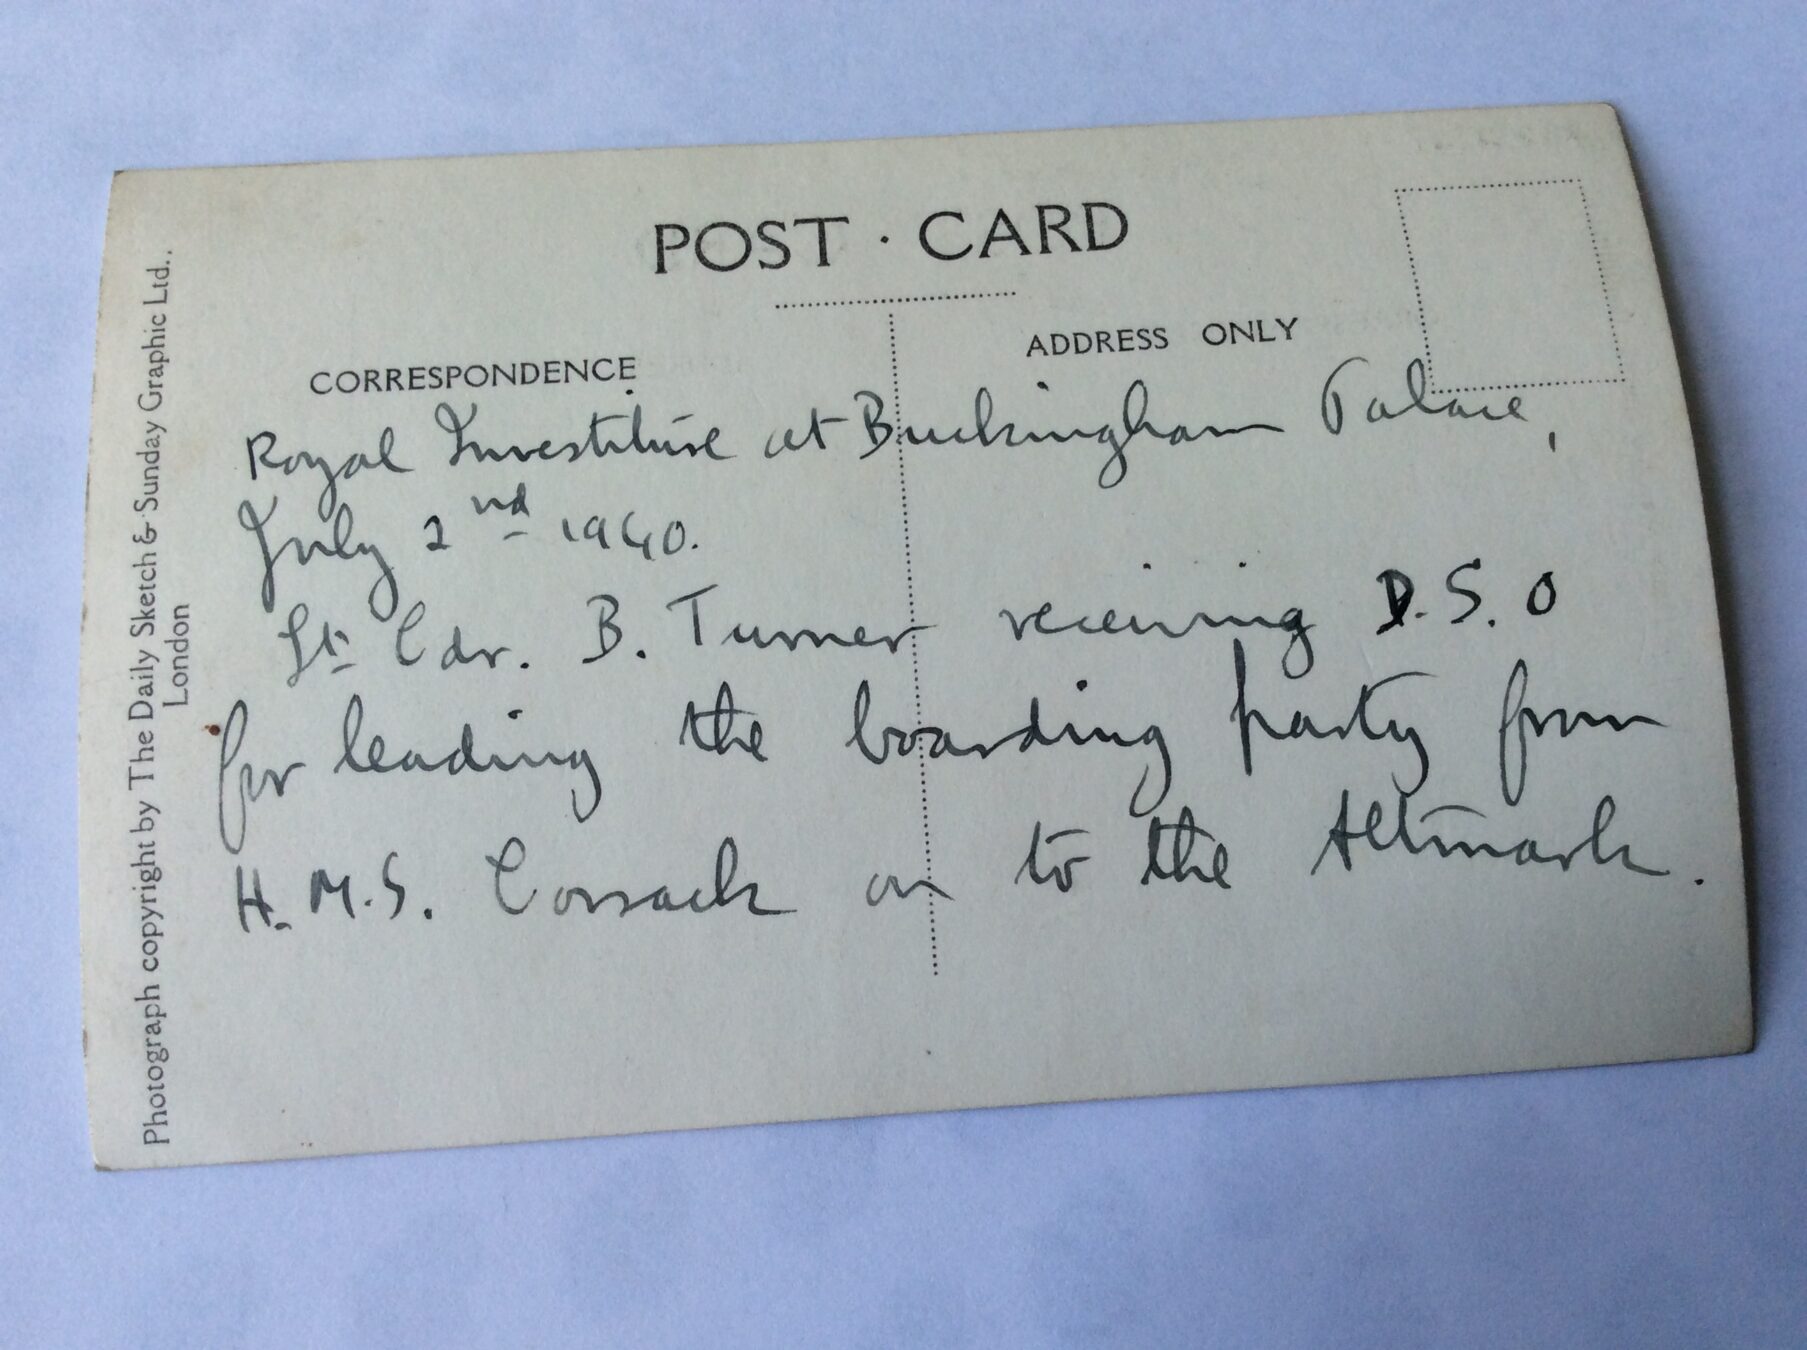 POST · CARD
CORRESPONDENCE
ADDRESS ONLY
Royal Investiture at Buckingham Palace,
July 2nd 1940.
Lt. Cdr. B. Turner receiving D.S.O
for leading the boarding party from
H.M.S. Cossack on to the Altmark.
Photograph copyright by The Daily Sketch & Sunday Graphic Ltd.,
London